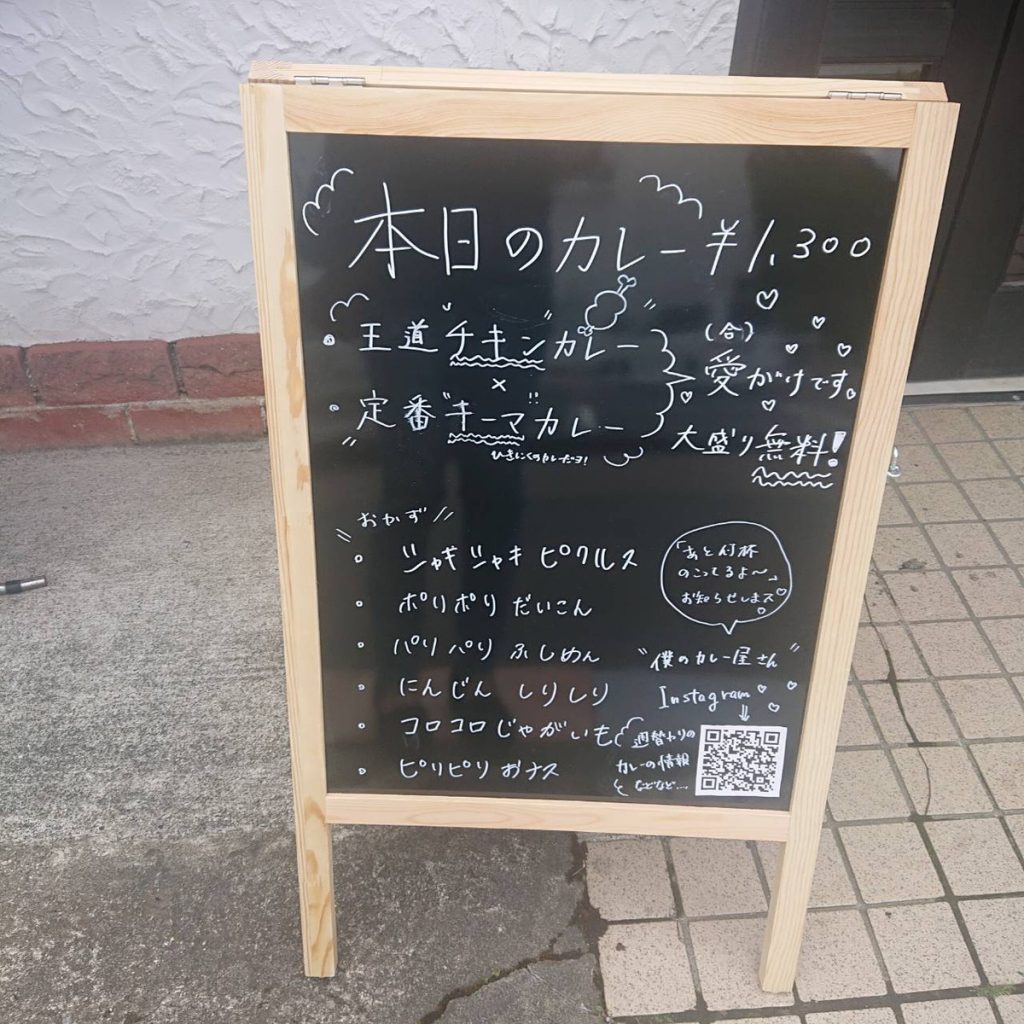 本日のカレー ¥1,300
王道"チキン"カレー
×
定番"キーマ"カレー
ひきにくのカレーだヨ!
(合)
愛がけです。
大盛り無料!
\\おかず//
・シャキシャキ ピクルス
・ポリポリ だいこん
・パリパリ ふしめん
・にんじん しりしり
・コロコロじゃがいも
・ピリピリ おナス
「あと何杯
のこってるよ〜」
お知らせしまス
"僕のカレー屋さん"
Instagram
⇓
週替わりの
カレーの情報
などなど...